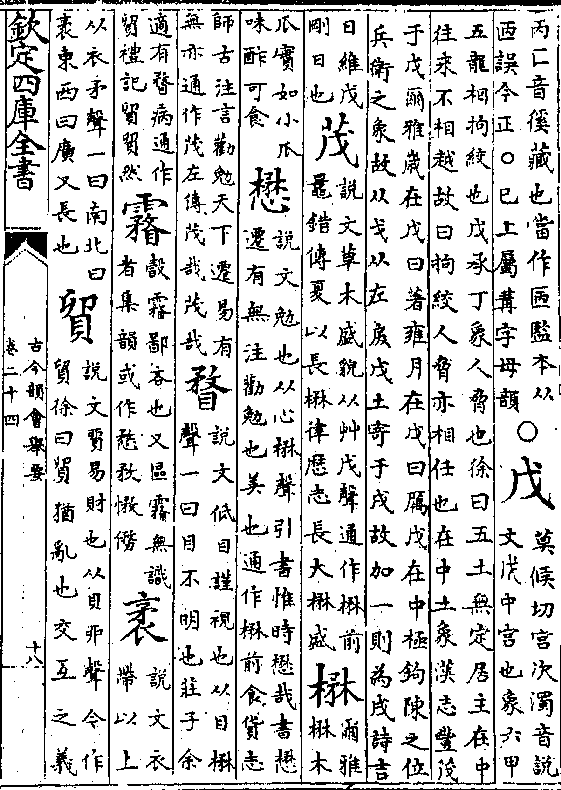 丙匚音徯藏也當作匧監本从
西誤今正○已上屬冓字母韻
○戊
莫候切宮次濁音說
文戊中宮也象六甲
五龍相拘絞也戊承丁象人脅也徐曰五土無定居主在中
往來不相越故曰拘絞人脅亦相任也在中土象漢志豐茂
于戊爾雅歲在戊曰著雍月在戊曰厲戊在中極鉤陳之位
兵衛之象故从戈从左戾戊土寄于戌故加一則為戌詩吉
日維戊
剛日也
茂
說文草木盛貌从艸戊聲通作楙前
鼂錯傳夏以長楙律歷志長大楙盛
楙
爾雅
楙木
瓜實如小瓜
味酢可食
懋
說文勉也从心楙聲引書惟時懋哉書懋
遷有無注勸勉也美也通作楙前食貨志
師古注言勸勉天下遷易有
無亦通作茂左傳茂哉茂哉
瞀
說文低目謹視也从目楙
聲一曰目不明也莊子余
適有瞀病通作
貿禮記貿貿然
霿
瞉霿鄙吝也又區霿無識
者集韻或作愗
袤
說文衣
帶以上
从衣矛聲一曰南北曰
袤東西曰廣又長也
貿
說文貿易財也从貝丣聲今作
貿徐曰貿猶亂也交互之義
欽定四庫全書
古今韻會舉要
卷二十四
十八